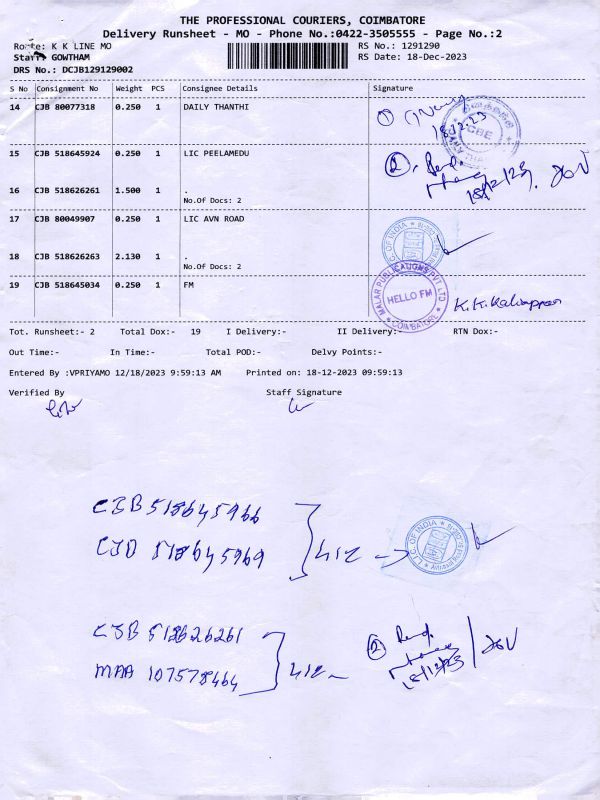 THE PROFESSIONAL COURIERS, COIMBATORE
Delivery Runsheet - MO - Phone No.:0422-3505555 - Page No.:2
Route: K K LINE MO RS No.: 1291290
Staff: GOWTHAM RS Date: 18-Dec-2023
DRS No.: DCJB129129002
S No Consignment No Weight PCS Consignee Details Signature
14 CJB 80077318 0.250 1 DAILY THANTHI
18.12.23
15 CJB 518645924 0.250 1 LIC PEELAMEDU
18/12/23
16 CJB 518626261 1.500 1 .
No.Of Docs: 2
17 CJB 80049907 0.250 1 LIC AVN ROAD
L.I.C. OF INDIA
18 CJB 518626263 2.130 1 .
No.Of Docs: 2
19 CJB 518645034 0.250 1 FM
MALAR PUBLICATIONS PVT LTD
HELLO FM
COIMBATORE
Tot. Runsheet:- 2 Total Dox:- 19 I Delivery:- II Delivery:- RTN Dox:-
Out Time:- In Time:- Total POD:- Delvy Points:-
Entered By :VPRIYAMO 12/18/2023 9:59:13 AM Printed on: 18-12-2023 09:59:13
Verified By Staff Signature
CJB 518645966
CJB 518645969
L.I.C. OF INDIA
CJB 518626261
MAA 107578464
18/12/23